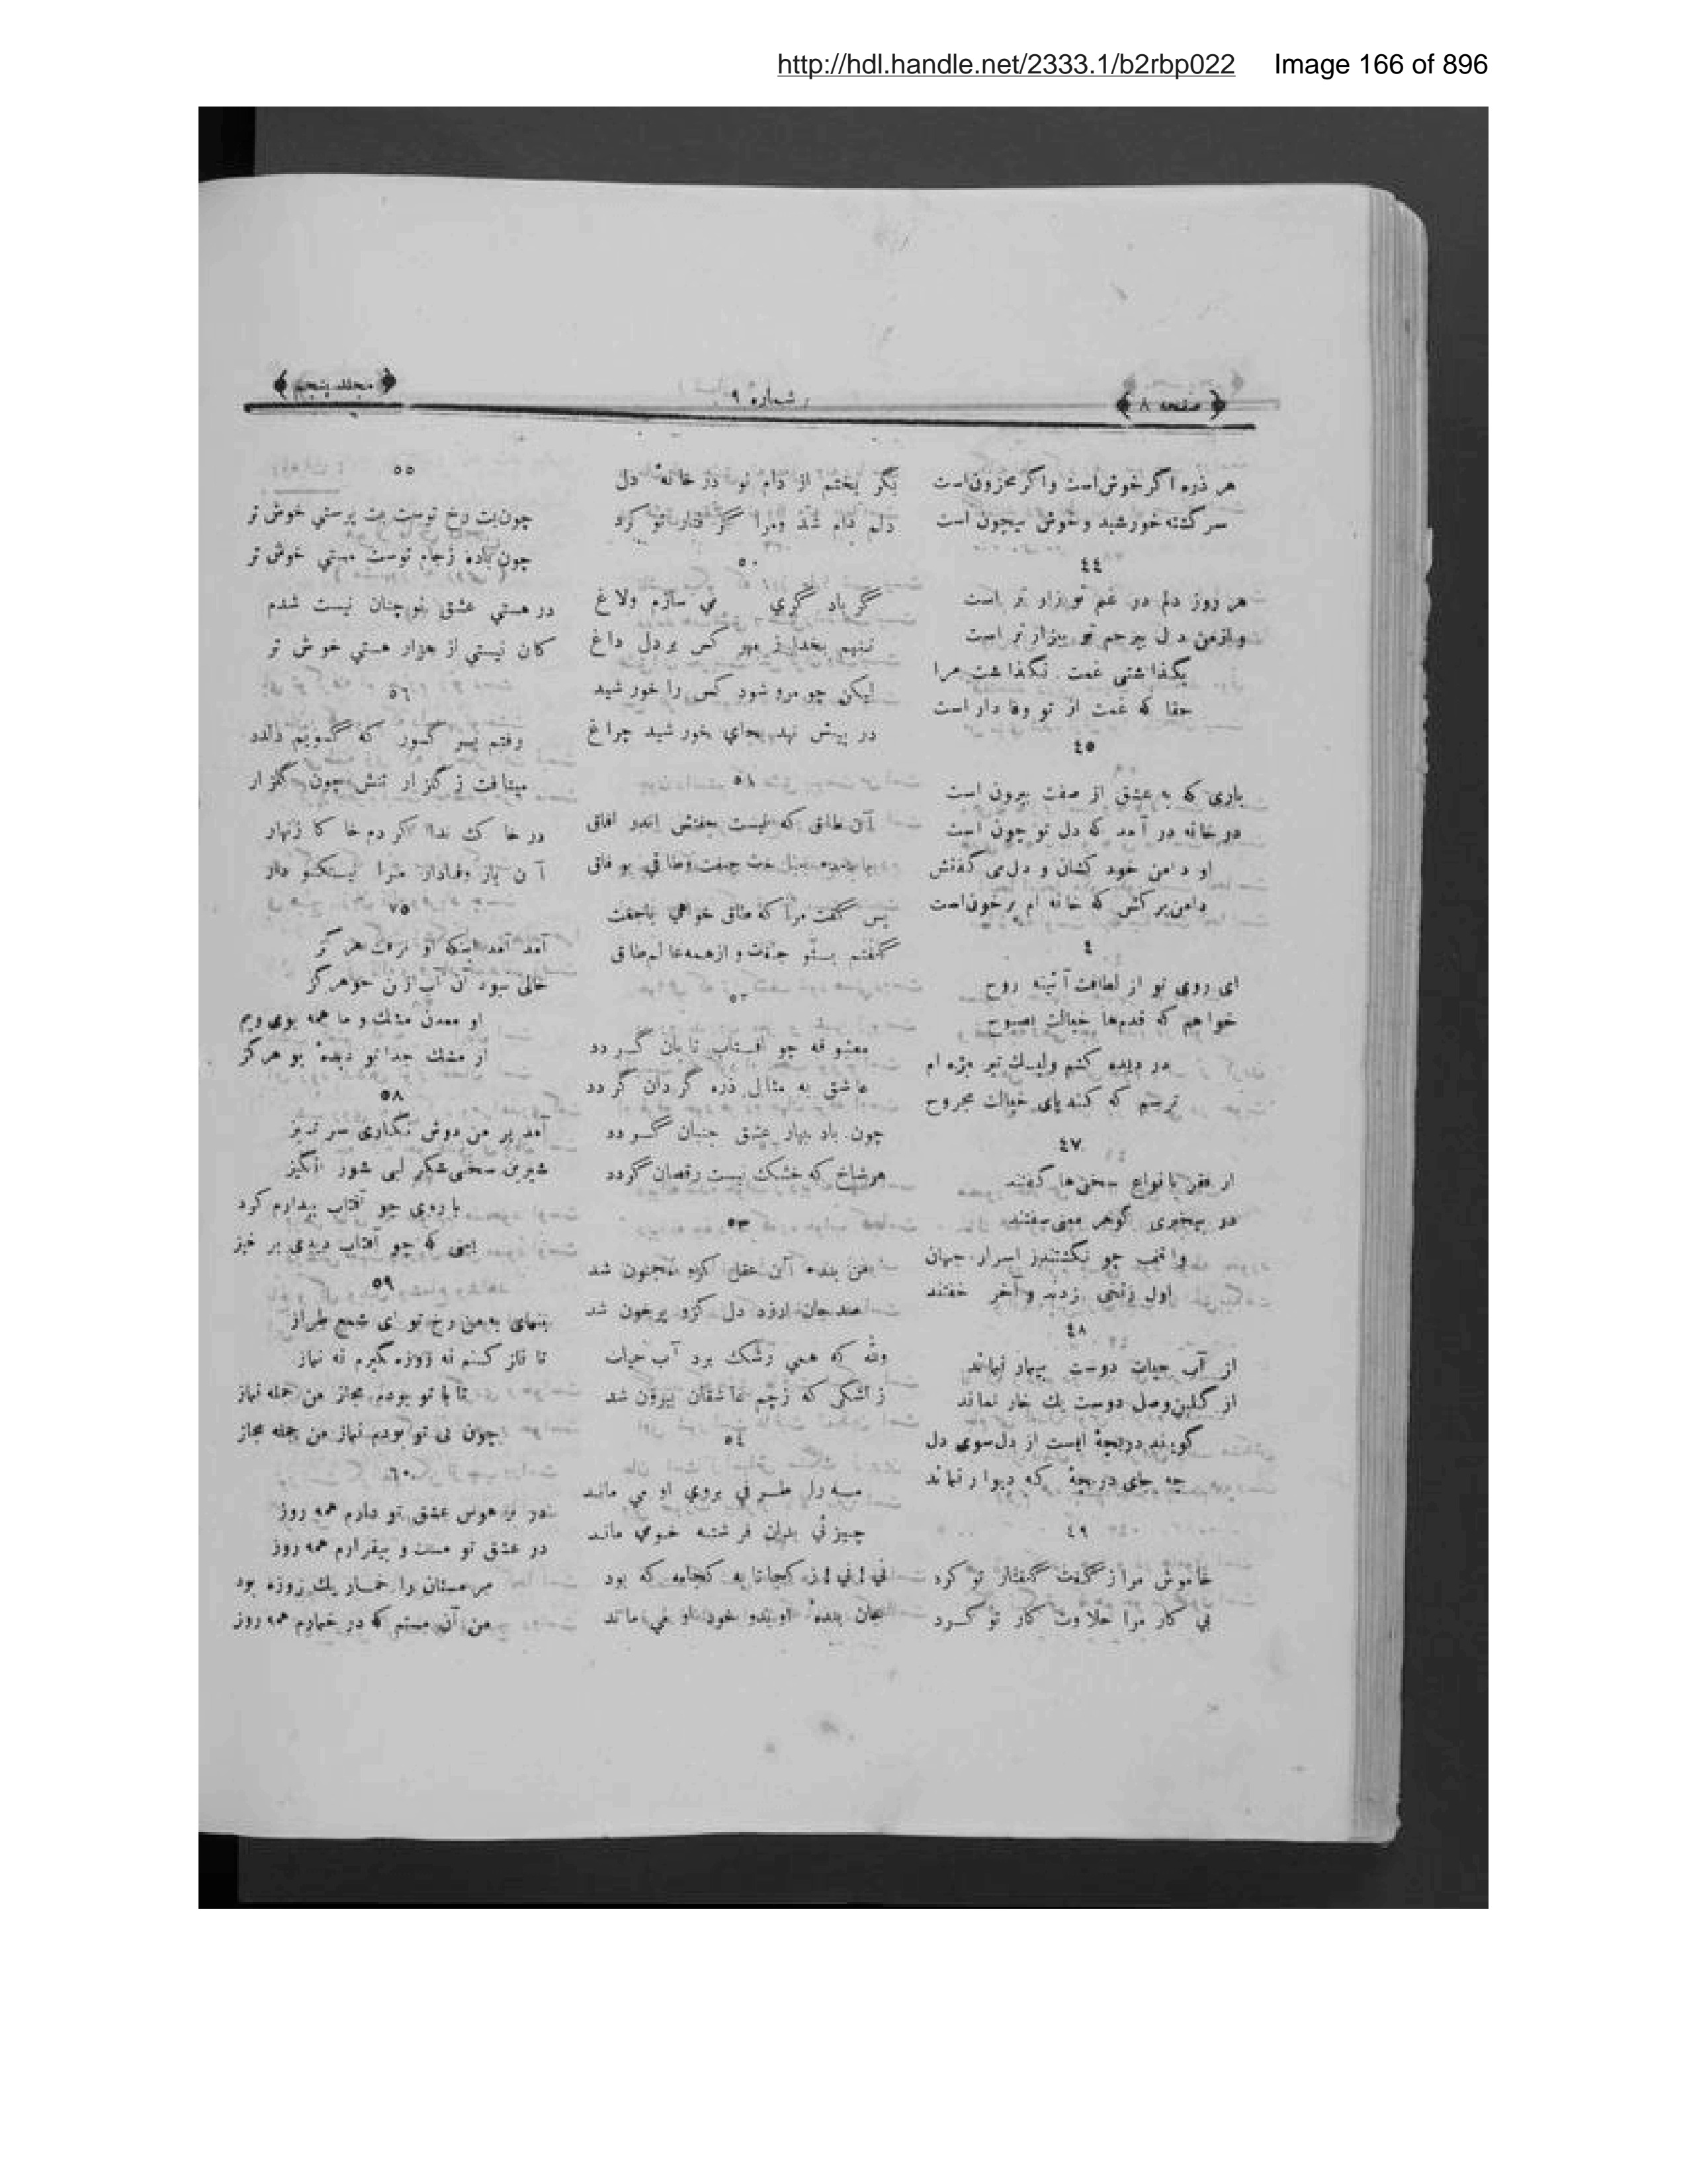 http://hdl.handle.net/2333.1/b2rbp022 Image 166 of 896
صفحه ٨
شماره ٩
مجلد پنجم
هر ذره اگر خوش است واگر محزون است
سرگشته خورشید وخوش بیچون است
٤٤
هر روز دلم در غم تو زار تر است
وزمن دل بیرحم تو بیزار تر است
بگذاشتی غمت نگذاشت مرا
حقا که غمت از تو وفا دار است
٤٥
باری که به عشق از صفت بیرون است
در خانه در آمد که دل تو چون است
او دامن خود کشان و دل می گفتش
دامن برکش که خانه ام پرخون است
٤
ای روی تو از لطافت آئینه روح
خواهم که قدمها خیالت بصبوح
در دیده کشم ولیک تیر مژه ام
ترسم که کند پای خیالت مجروح
٤٧
از فقر بانواع سخن ها گفتند
در بیخبری گوهر معنی سفتند
واقف چو نگشتند ز اسرار جهان
اول زنخی زدند وآخر خفتند
٤٨
از آب حیات دوست بیمار نماند
از گلبن وصل دوست یك خار نماند
گویند دریچهٔ ایست از دل سوی دل
چه جای دریچهٔ که دیوار نماند
٤٩
خاموش مرا ز گفت گفتار تو کرد
بی کار مرا حلاوت کار تو کرد
بگریختم از دام تو در خانهٔ دل
دلم دام شد ومرا گرفتار تو کرد
٥٠
گر باد گري می سازم ولاغ
ننهم بخدا ز مهر کس بردل داغ
لیکن چو مرو شود کس را خورشید
در پیش نهد بجاي خورشید چراغ
٥١
آن طاق که نیست جفتش اندر افاق
پس گفت مرا که طاق خواهي یاجفت
گفتم بتو جفت و از همه عالم طاق
٥٢
معشوقه چو افتاب تابان گردد
عاشق به مثال ذره گردان گردد
چون باد بهار عشق جنبان گردد
هرشاخ که خشک نیست رقصان گردد
٥٣
من بنده آن عقل کزو مجنون شد
صد جان ارزد دل کزو پرخون شد
والله که همي رشک برد آب حیات
ز اشکی که زچم عاشقان بیرون شد
٥٤
مه را طرفي بروي او می ماند
چیزي بدان فرشته خومي ماند
ني ني ز کجا تا به کجامه که بود
جان بندهٔ او بدو خود او می ماند
٥٥
چون بت رخ توست بت پرستي خوش تر
چون باده زجام توست مستي خوش تر
در هستي عشق تو چنان نیست شدم
کان نیستي از هزار هستي خوش تر
٥٦
رفتم بسر گور که گویم دلدار
میتافت ز گلزار تنش چون گلزار
در خاك ندا کردم خاکا زنهار
آن یار وفادار مرا نیکو دار
٧٥
آمد آمد آنکه او نرفت هرگز
خالی نبود آن آب از ن جوهرگز
او معدن مشك و ما همه بوی ویم
از مشك جدا تو دیدهٔ بو هرگز
٥٨
آمد بر من دوش نگاری سر تیز
شیرین سخنی شکر لبی شور انگیز
با روی چو آفتاب بیدارم کرد
یعنی که چو آفتاب دیدی بر خیز
٥٩
بنمای به من رخ تو ای شمع طراز
تا ناز کنم نه روزه گیرم نه نماز
تا با تو بودم مجاز من جمله نماز
چون بی تو بودم نماز من جمله مجاز
٦٠
در سر هوس عشق تو دارم همه روز
در عشق تو مست و بیقرارم همه روز
مر مستان را خمار یك روزه بود
من آن مستم که در خمارم همه روز